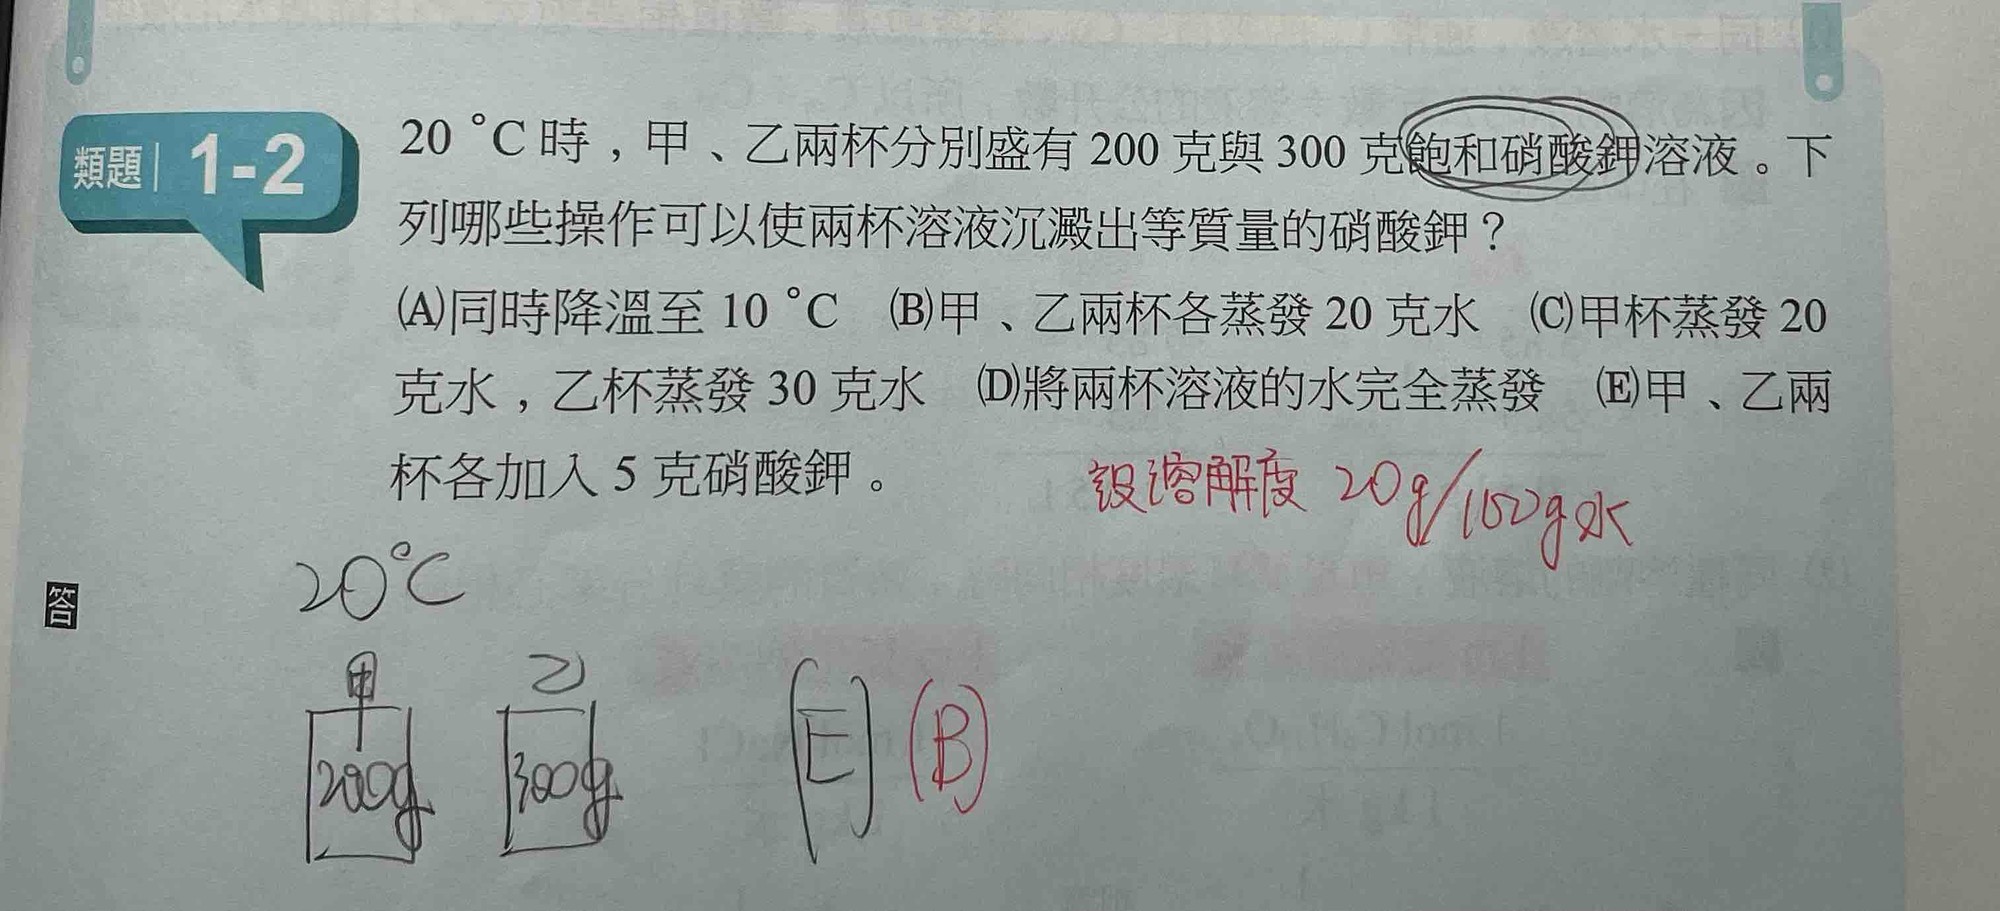 類題 1-2
20 °C時，甲、乙兩杯分別盛有 200 克與 300 克飽和硝酸鉀溶液。下
列哪些操作可以使兩杯溶液沉澱出等質量的硝酸鉀？
(A)同時降溫至 10 °C (B)甲、乙兩杯各蒸發 20 克水 (C)甲杯蒸發 20
克水，乙杯蒸發 30 克水 (D)將兩杯溶液的水完全蒸發 (E)甲、乙兩
杯各加入 5 克硝酸鉀。
設溶解度 20g/100g水
20°C
答
甲 乙
200g 300g (E) (B)